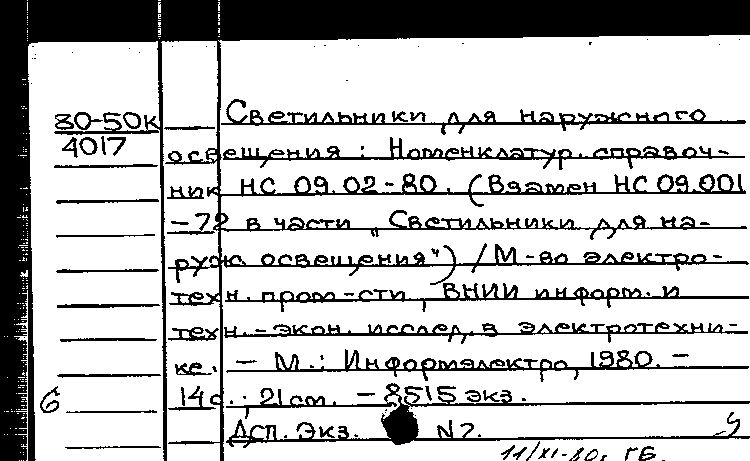 80-50к
4017
Светильники для наружного
освещения : Номенклатур. справоч-
ник НС 09.02-80. (Взамен НС 09.001
-72 в части „Светильники для на-
руж. освещения") / М-во электро-
техн. пром-сти, ВНИИ информ. и
техн.-экон. исслед. в электротехни-
ке. - М.: Информэлектро, 1980. -
14с. ; 21см. - 8515 экз.
б
ДСП. Экз. N7.
11/XI-80г ГБ.